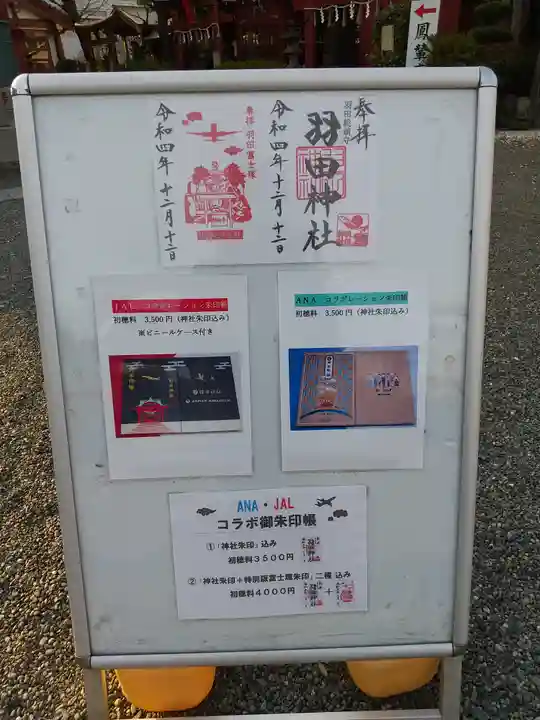 奉拝
羽田神社
令和四年十二月十二日
奉拝 羽田富士塚
令和四年十二月十二日
JAL コラボレーション朱印帳
初穂料 3,500円（神社朱印込み）
※ビニールケース付き
ANA コラボレーション朱印帳
初穂料 3,500円（神社朱印込み）
ANA・JAL
コラボ御朱印帳
①「神社朱印」込み
初穂料３５００円
②「神社朱印＋特別版富士塚朱印」二種 込み
初穂料４０００円